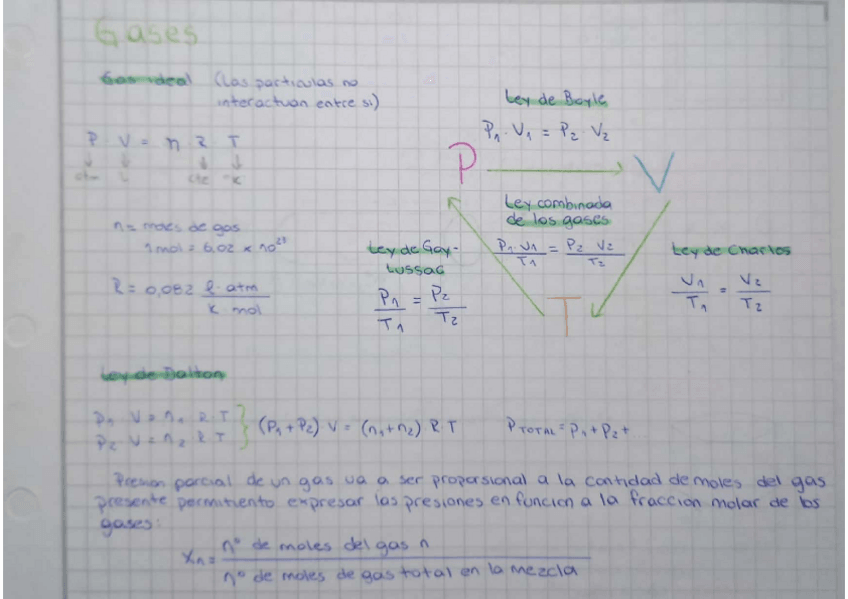 Gases
Gas ideal (Las particulas no
interactuan entre si)
P V = n R T
↓ ↓ ↓ ↓
atm L cte °K
n = moles de gas
1 mol = 6,02 × 10²³
R = 0,082 ℓ · atm / K · mol
Ley de Boyle
P₁ · V₁ = P₂ V₂
P → V
Ley combinada
de los gases
P₁ · V₁ / T₁ = P₂ V₂ / T₂
Ley de Gay-
Lussac
P₁ / T₁ = P₂ / T₂
Ley de Charles
V₁ / T₁ = V₂ / T₂
T
Ley de Dalton
P₁ V = n₁ R T
P₂ V = n₂ R T
(P₁ + P₂) V = (n₁ + n₂) R T
P TOTAL = P₁ + P₂ + ...
Presion parcial de un gas va a ser proporsional a la cantidad de moles del gas
presente permitiento expresar las presiones en funcion a la fraccion molar de los
gases:
Xn = nº de moles del gas n / nº de moles de gas total en la mezcla